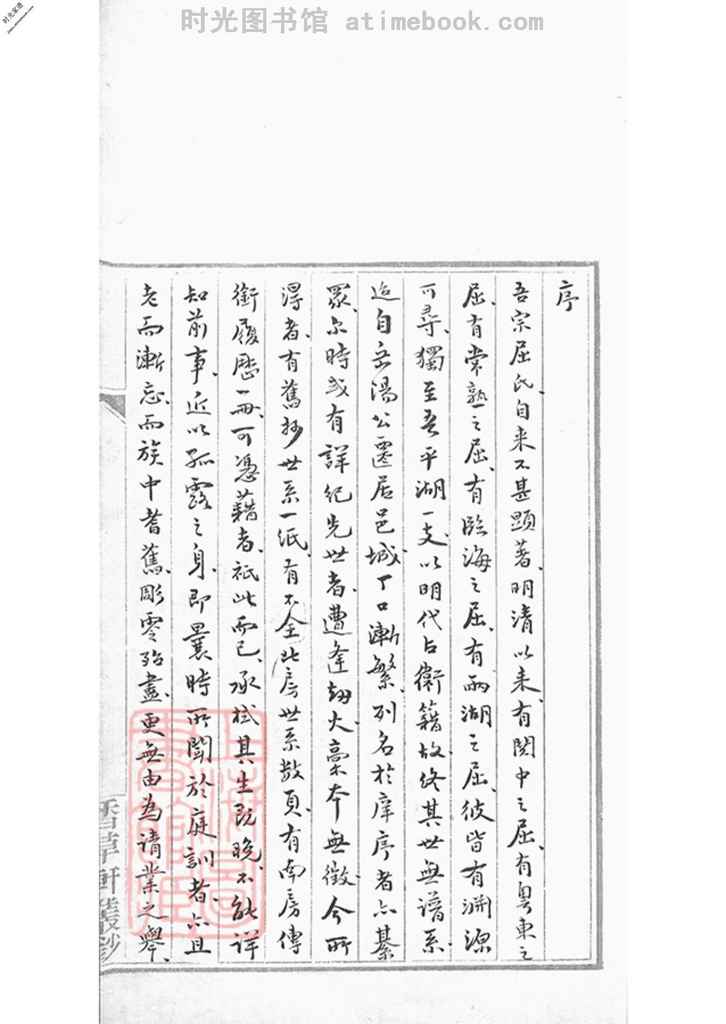 时光图书馆 atimebook.com
序
吾宗屈氏自来不甚顯著明清以来有関中之屈有粤東之
屈有常熟之屈有臨海之屈有兩湖之屈彼皆有淵源
可尋獨至吾平湖一支以明代占衛籍故終其世無譜系
迨自岳陽公遷居邑城丁口漸繁列名於庠序者亦綦
眾尔時或有詳纪先世者遭逢劫火藁本無徵今所
淂者有舊抄世系一纸有不全北房世系散頁有南房傳
銜履歷一冊可憑藉者祇此而已承栻其生既晚不能詳
知前事近以孤露之身即曩時所聞於庭訓者亦且
老而漸忘而族中耆舊彫零殆盡更無由為請業之舉
香草軒叢鈔